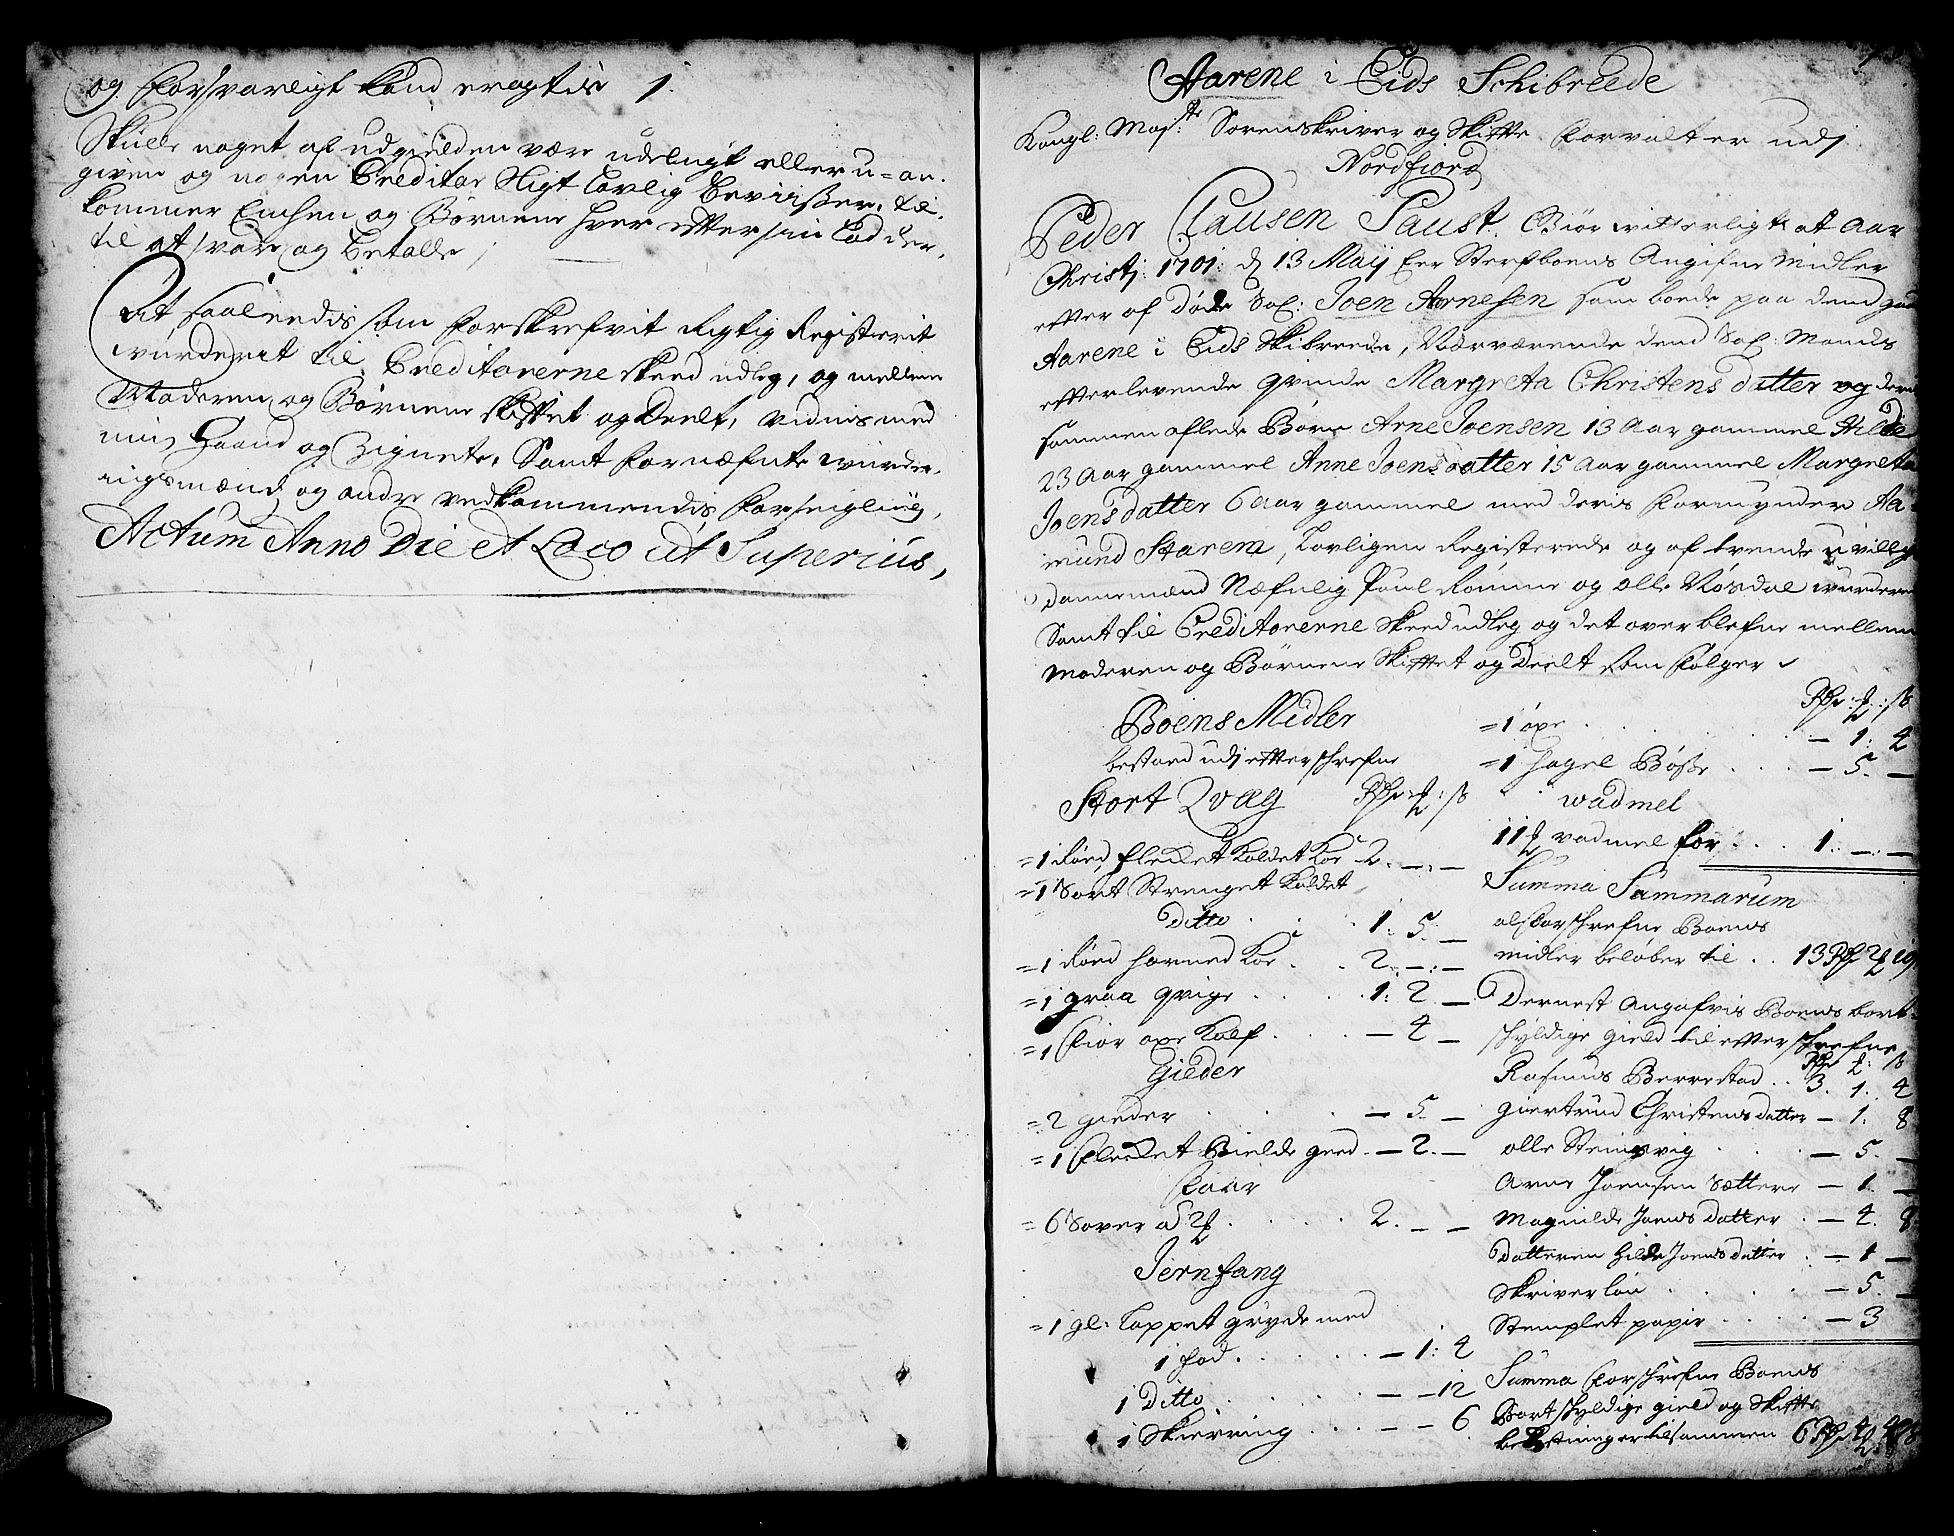 og forsvarligt kand eragtis /.
Skulle noget af udgielden være udelugt eller u-an-
given og nogen Creditor sligt lovlig bevisser, til-
kommer Enchen og Børnene hver effter sin Lod der,
til at svare og betalle,
At saaledis som forskrefvit Rigtig Registerit
wurderit til Creditorerne skeed udleg, og mellem
Moderen og Børnene skifftet og Deelt, vidnis med
min Haand og Zignete, Samt fornæfnte wurder-
ingsmænd og andre vedkommendis forseigling,
Actum Anno Die et Loco ut Superius,
Aarene i Eids Schibreede
Kongl: Mayts Sorenskriver og Skiffte forvalter udj
Nordfiord
Peder Clausen Faust. Giør witterligt at Aar
Christj: 1701: d 13 Maij Er Sterfboens Angifne Midler
effter af Døde Sal: Joen Arnesen som boede paa dend gaa
Aarene i Eids Skibreede, Nærværende dend Sal: Mands
effterlevende qvinde Margreta Christens datter og deris
sammen aflede Børn Arne Joensen 13 Aar gammel Hilde
23 Aar gammel Anne Joens datter 15 Aar gammel Margreta
Joens datter 6 Aar gammel med deris formynder Aa
mund Starem, Lovligen Registerede og af tvende uvillige
Dannemænd Næfnlig Poul Rømme og Olle Nøsdal wurderet
Samt til Creditorerne Skeed udleg og det over blefne mellem
Moderen og Børnene Skifftet og Deelt som følger
Boens Midler
bestaaed udj effterschrefne
Stort Qvæg Rdr: ₰: ß
=1 Røed flecket Koldet Koe 2. — . —
=1 Sort Strenget Koldet
Ditto . . . 1: 5: —
=1 Røed horned Koe . . 2. — : —
=1 graa qvige . . . 1: 2. —
=1 fior oxe Kalf . . . — 4 —
Gieder
=2 gieder . . . — 5. —
=1 flecket Bielde geed . — 2. —
faar
=6 Sover a 2 ₰ . . . 2. — —
Jernfang
=1 gl: Lappet gryde med
1 fod . . . — 1: 4
1 Ditto . . . — — 12
1 Skierring . . . — — 6
Rdr: ₰: ß
=1 øxe . . . — 1: 4
=1 Hagel Bøsse . . . — 5. —
wadmel
11 ₰ vadmel for . . . 1: — : —
Summa Summarum
alforschrefne Boens
midler beløber til . . 13 Rdr 2 ₰ 10
Dernest Angafvis Boens bort-
skyldige gield til effterschrefne
Rdr ₰: ß
Rasmus Berrestad . . 3. 1. 4
Giertrud Christens datter — 1. 8
Olle Steinsvig . . . — 5. —
Arne Joensen Sættere — 1. —
Magnilde Joens datter . — 4. 8
Datteren Hilde Joens datter . — 1 —
Skriver løn . . . — 5. —
Stemplet papir . . . — 3
Summa forschrefne Boens
Bortskyldige gield og Skiffts
bekostninger tilsammen 6 Rdr 4 ₰ 8